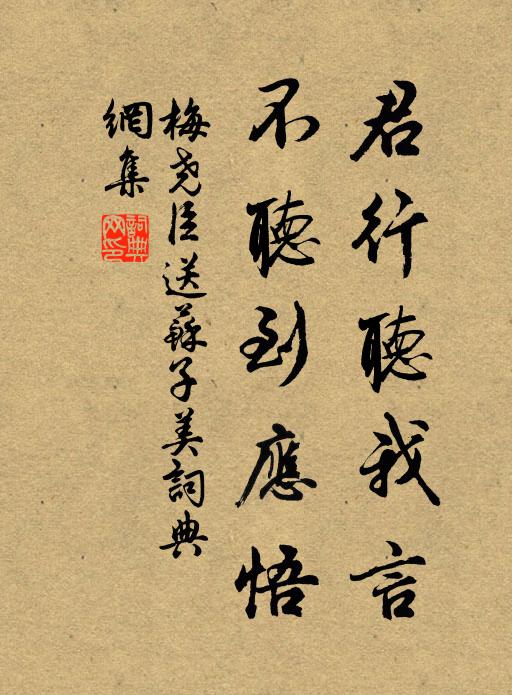 君行聽我言
不聽到應悟
梅堯臣送蘇子美詞典
網集
詞典
网印